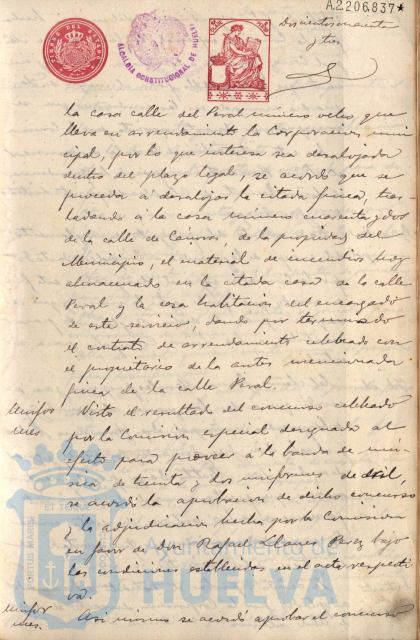 A2206,837*
Doscientos cuarenta
y tres
ALCALDIA CONSTITUCIONAL DE HUELVA
la casa calle del Peral número ocho que
lleva en arrendamiento la Corporación muni
cipal, por lo que interesa sea desalojada
dentro del plazo legal, se acordó que se
proceda á desalojar la citada finca, tras-
ladando á la casa número cuarenta y dos
de la calle de Cánovas, de la propiedad del
Municipio, el material de incendios hoy
almacenado en la citada casa de la calle
Peral y la casa habitación del encargado
de este servicio, dando por terminado
el contrato de arrendamiento celebrado con
el propietario de la antes mencionada
finca de la calle Peral.
Unifor
mes
Visto el resultado del concurso celebrado
por la Comisión especial designada al
efecto para proveer á la banda de mú-
sica de treinta y dos uniformes de dril,
se acordó la aprobación de dicho concurso
y la adjudicación hecha por la Comisión
en favor de don Rafael Llanes Perez bajo
las condiciones establecidas en el acta respecti
va.
Unifor
mes.
Asi mismo se acordó aprobar el concurso
Ayuntamiento de
HUELVA